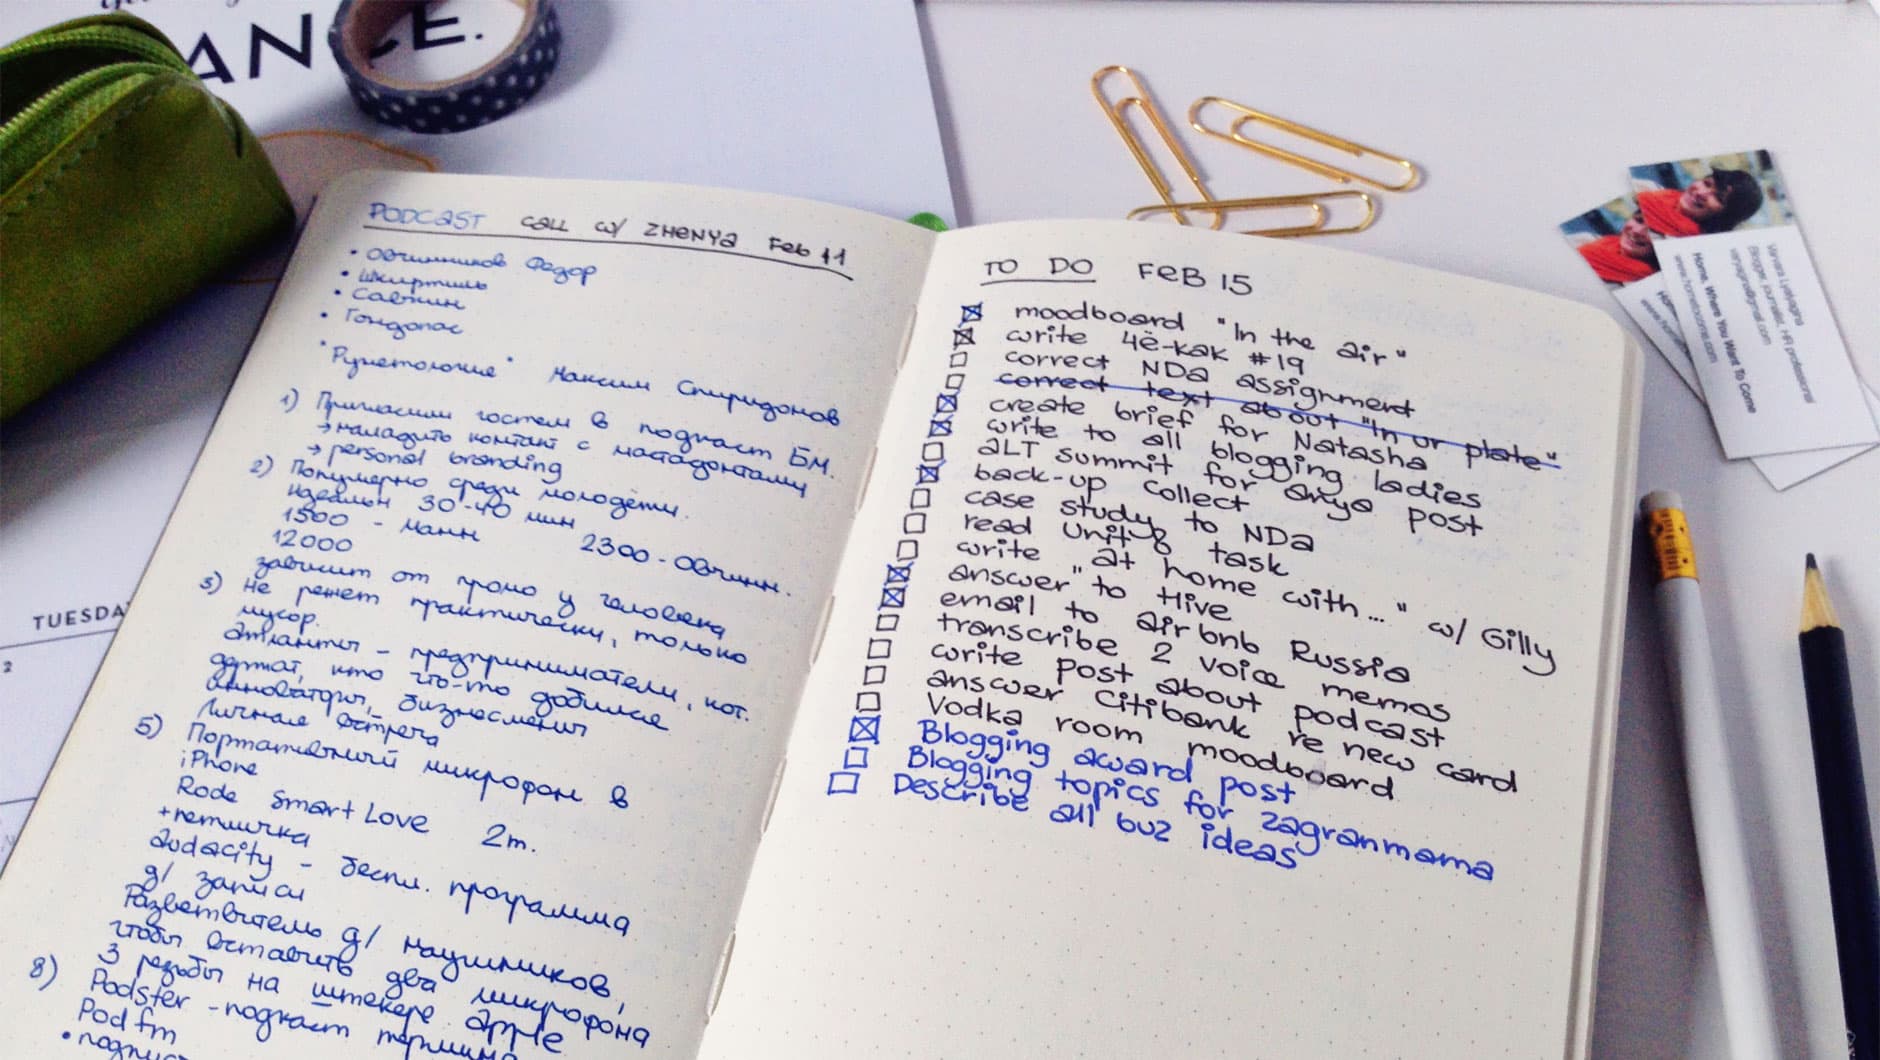 ANCE.
TUESDA
2
PODCAST call w/ ZHENYA Feb 11
• Овчинников Федор
• Шкиртиль
• Савкин
• Гондопас
"Рунетология" Максим Спиридонов
1) Пригласили гостем в подкаст БМ.
→ наладить контакт с мастадонтами
→ personal branding
2) Популярно среди молодёжи.
идеальн 30-40 мин
1500 - манн 2300 - Овчинн.
12000
зависит от промо у человека
3) Не режет практически, только
мусор.
атланты - предприниматели, кот.
держат, кто что-то добился
инноваторы, бизнесмены
Личная встреча
5) Портативный микрофон в
iPhone
Rode Smart Love 2m.
+ петличка
audacity - беспл. программа
д/ записи
Разветвитель д/ наушников,
чтобы вставить два микрофона
3 резьбы на штекере apple
8) Podster - подкаст
Pod fm
TO DO FEB 15
moodboard "In the air"
write 4ё-как #19
correct NDa assignment
correct text about "In ur plate"
create brief for Natasha
write to all blogging ladies
aLT summit for anya post
back-up collect
case study to NDa
read Unit 8 task
write "at home with..." w/ Gilly
answer to Hive
email to airbnb Russia
transcribe 2 voice memos
write post about podcast
answer Citibank re new card
Vodka room moodboard
Blogging award post
Blogging topics for zagranmama
Describe all buz ideas
Varvara Lyalyagina
Blogger, journalist, HR professional
Home. Where You Want To Come
www.homeiwillcome.com